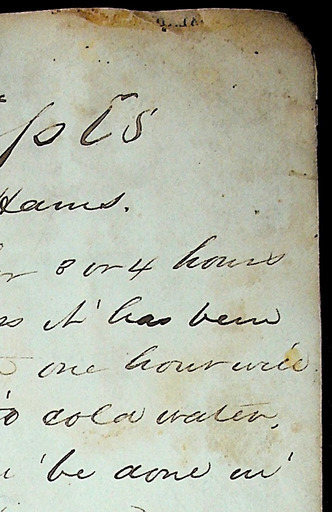 pts
Hams.
or 3 or 4 hours
as it has been
one hour will
to cold water,
be done in